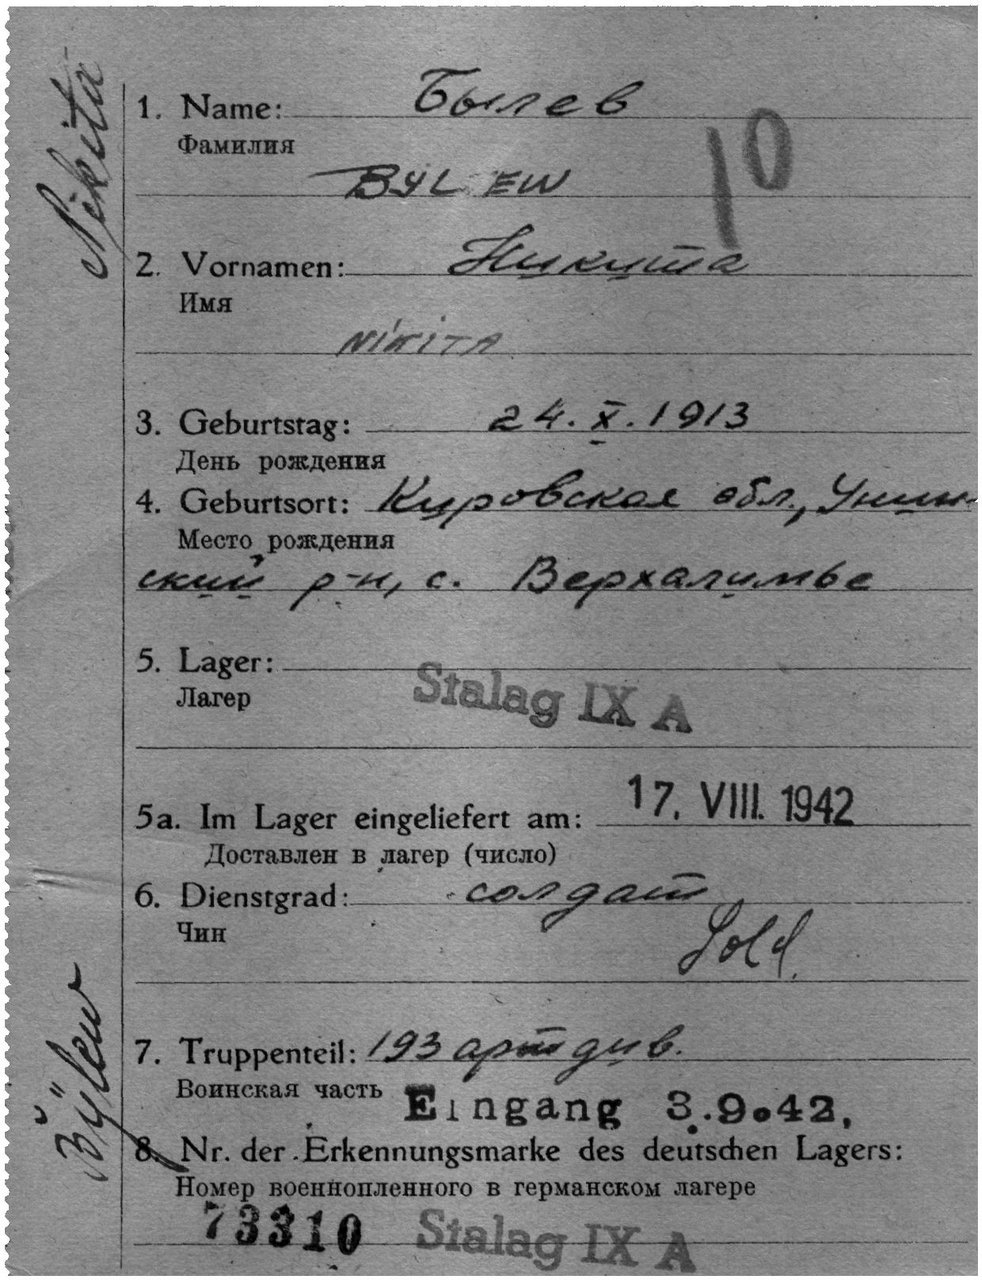 Nikita
1. Name: Былев
Фамилия
BYLEW
10
2. Vornamen: Никита
Имя
NIKITA
3. Geburtstag: 24.X.1913
День рождения
4. Geburtsort: Кировская обл., Унин-
Место рождения
ский р-н, с. Верхалимье
5. Lager:
Лагер
Stalag IX A
5a. Im Lager eingeliefert am: 17. VIII. 1942
Доставлен в лагер (число)
6. Dienstgrad: солдат
Чин
Sold.
7. Truppenteil: 193 арт див.
Воинская часть
Eingang 3.9.42,
Bÿlew
8. Nr. der Erkennungsmarke des deutschen Lagers:
Номер военнопленного в германском лагере
73310 Stalag IX A